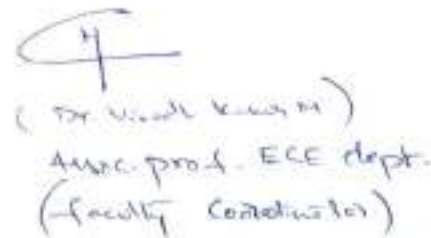 (Dr Vinoth Kumar M)
Assoc. prof. ECE dept.
(faculty Coordinator)